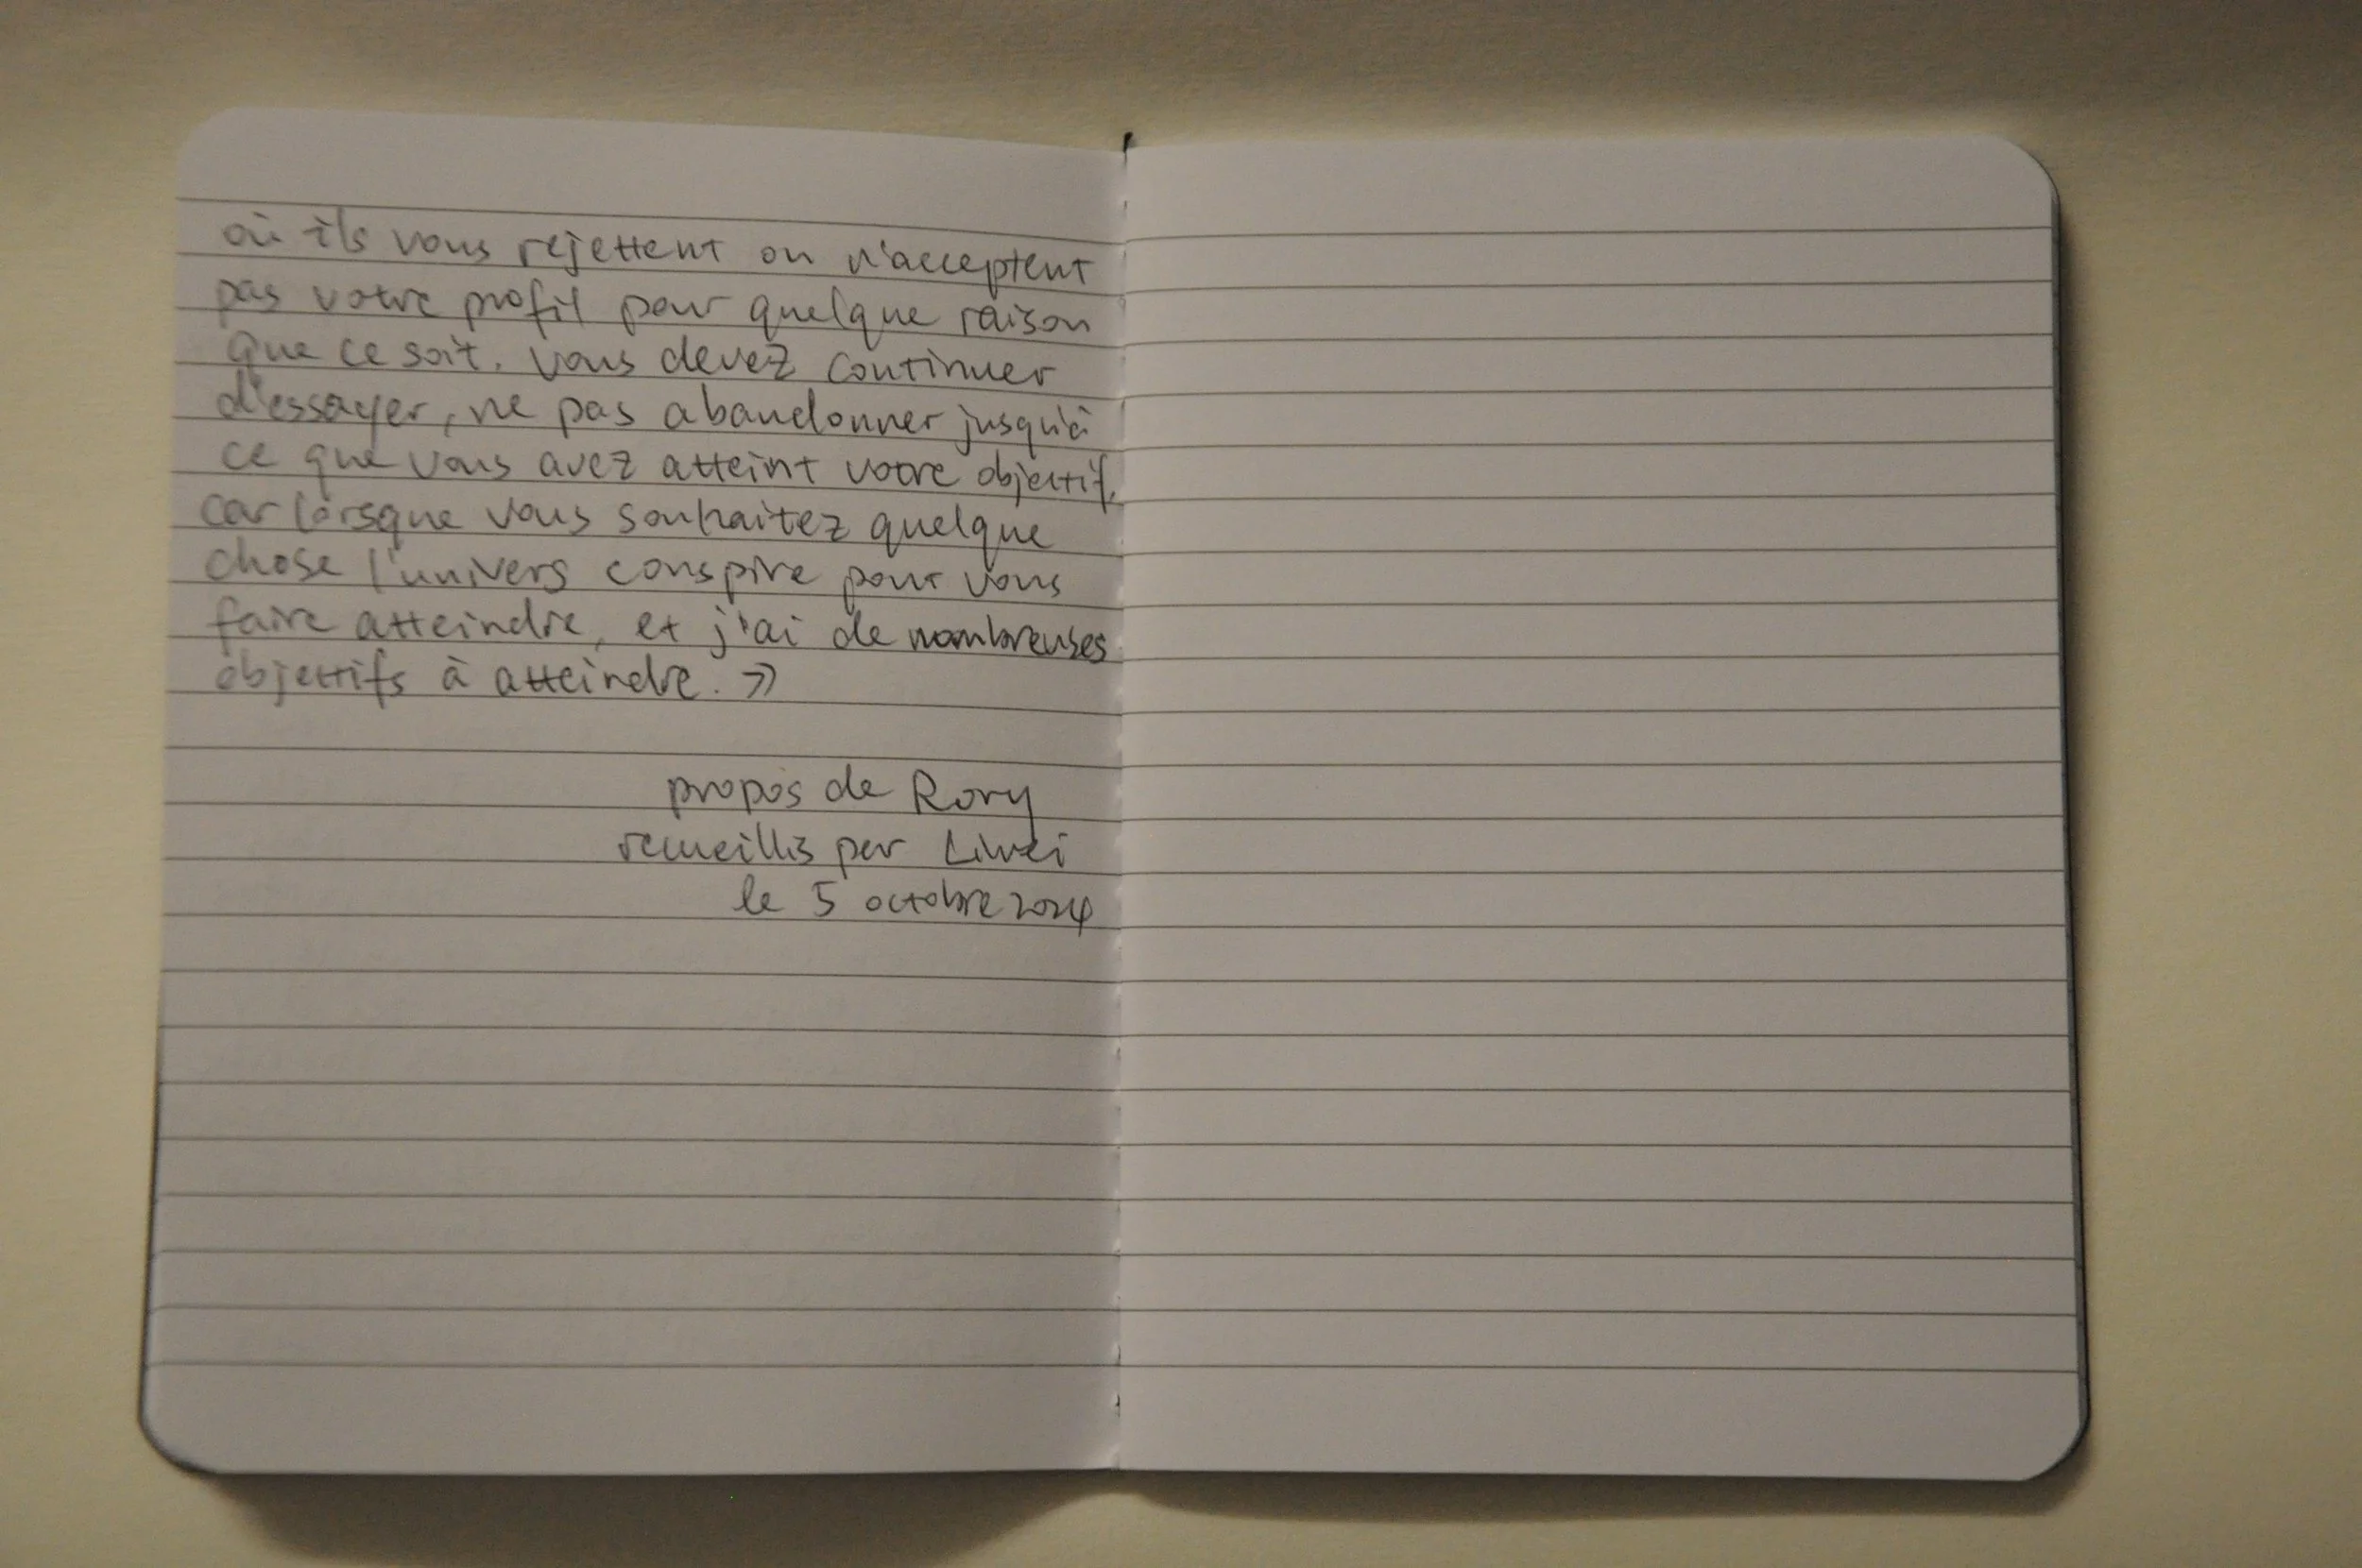 où ils vous rejettent ou n'acceptent
pas votre profil pour quelque raison
que ce soit. Vous devez continuer
d'essayer, ne pas abandonner jusqu'à
ce que vous avez atteint votre objectif,
car lorsque vous souhaitez quelque
chose l'univers conspire pour vous
faire atteindre, et j'ai de nombreuses
objectifs à atteindre. »
propos de Rory
recueillis par Liwei
le 5 octobre 2024